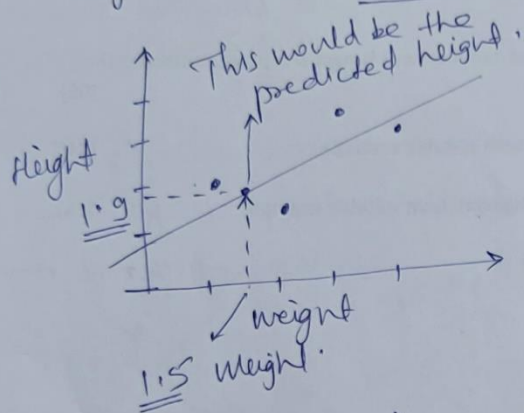 This would be the
predicted height.
Height
1.9
weight
1.5 weight.